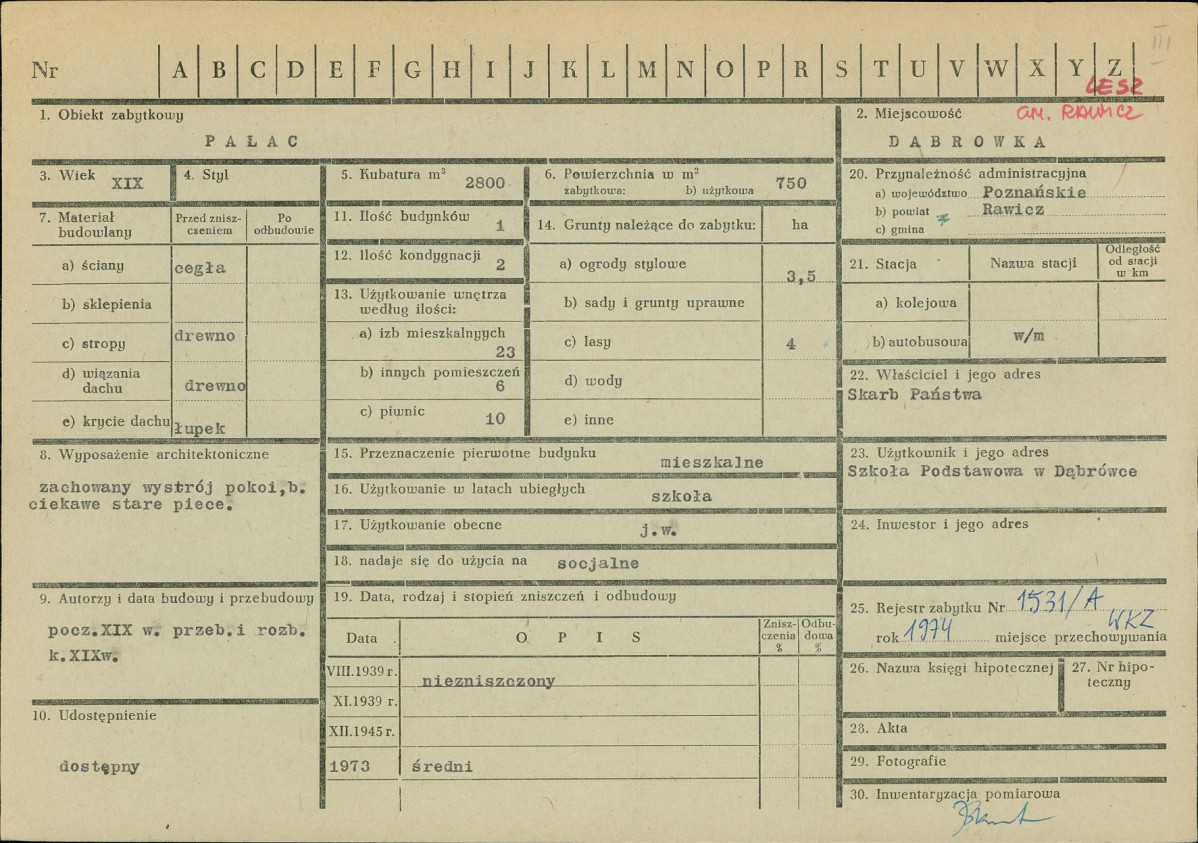 Nr A B C D E F G H I J K L M N O P R S T U V W X Y Z
III
LESZ
gm. RAWICZ
1. Obiekt zabytkowy
PAŁAC
2. Miejscowość
DABROWKA
3. Wiek XIX
4. Styl
5. Kubatura m³ 2800
6. Powierzchnia w m²
zabytkowa: b) użytkowa 750
20. Przynależność administracyjna
a) województwo Poznańskie
b) powiat Rawicz
c) gmina
7. Materiał budowlany
Przed zniszczeniem
Po odbudowie
a) ściany cegła
b) sklepienia
c) stropy drewno
d) wiązania dachu drewno
e) krycie dachu łupek
11. Ilość budynków 1
12. Ilość kondygnacji 2
13. Użytkowanie wnętrza
według ilości:
a) izb mieszkalnyych
23
b) innych pomieszczeń
6
c) piwnic 10
14. Grunty należące do zabytku: ha
a) ogrody stylowe 3,5
b) sady i grunty uprawne
c) lasy 4
d) wody
e) inne
21. Stacja
Nazwa stacji
Odległość
od stacji
w km
a) kolejowa
b) autobusowa w/m
22. Właściciel i jego adres
Skarb Państwa
8. Wyposażenie architektoniczne
zachowany wystrój pokoi,b.
ciekawe stare piece.
15. Przeznaczenie pierwotne budynku mieszkalne
16. Użytkowanie w latach ubiegłych szkoła
17. Użytkowanie obecne j.w.
18. nadaje się do użycia na socjalne
23. Użytkownik i jego adres
Szkoła Podstawowa w Dąbrówce
24. Inwestor i jego adres
9. Autorzy i data budowy i przebudowy
pocz.XIX w. przeb.i rozb.
k.XIXw.
19. Data, rodzaj i stopień zniszczeń i odbudowy
Data
OPIS
Zniszczenia
%
Odbudowa
%
VIII.1939 r. niezniszczony
XI.1939 r.
XII.1945 r.
1973 średni
25. Rejestr zabytku Nr 1531/A
rok 1974 miejsce przechowywania WKZ
26. Nazwa księgi hipotecznej
27. Nr hipoteczny
10. Udostępnienie
dostępny
28. Akta
29. Fotografie
30. Inwentaryzacja pomiarowa